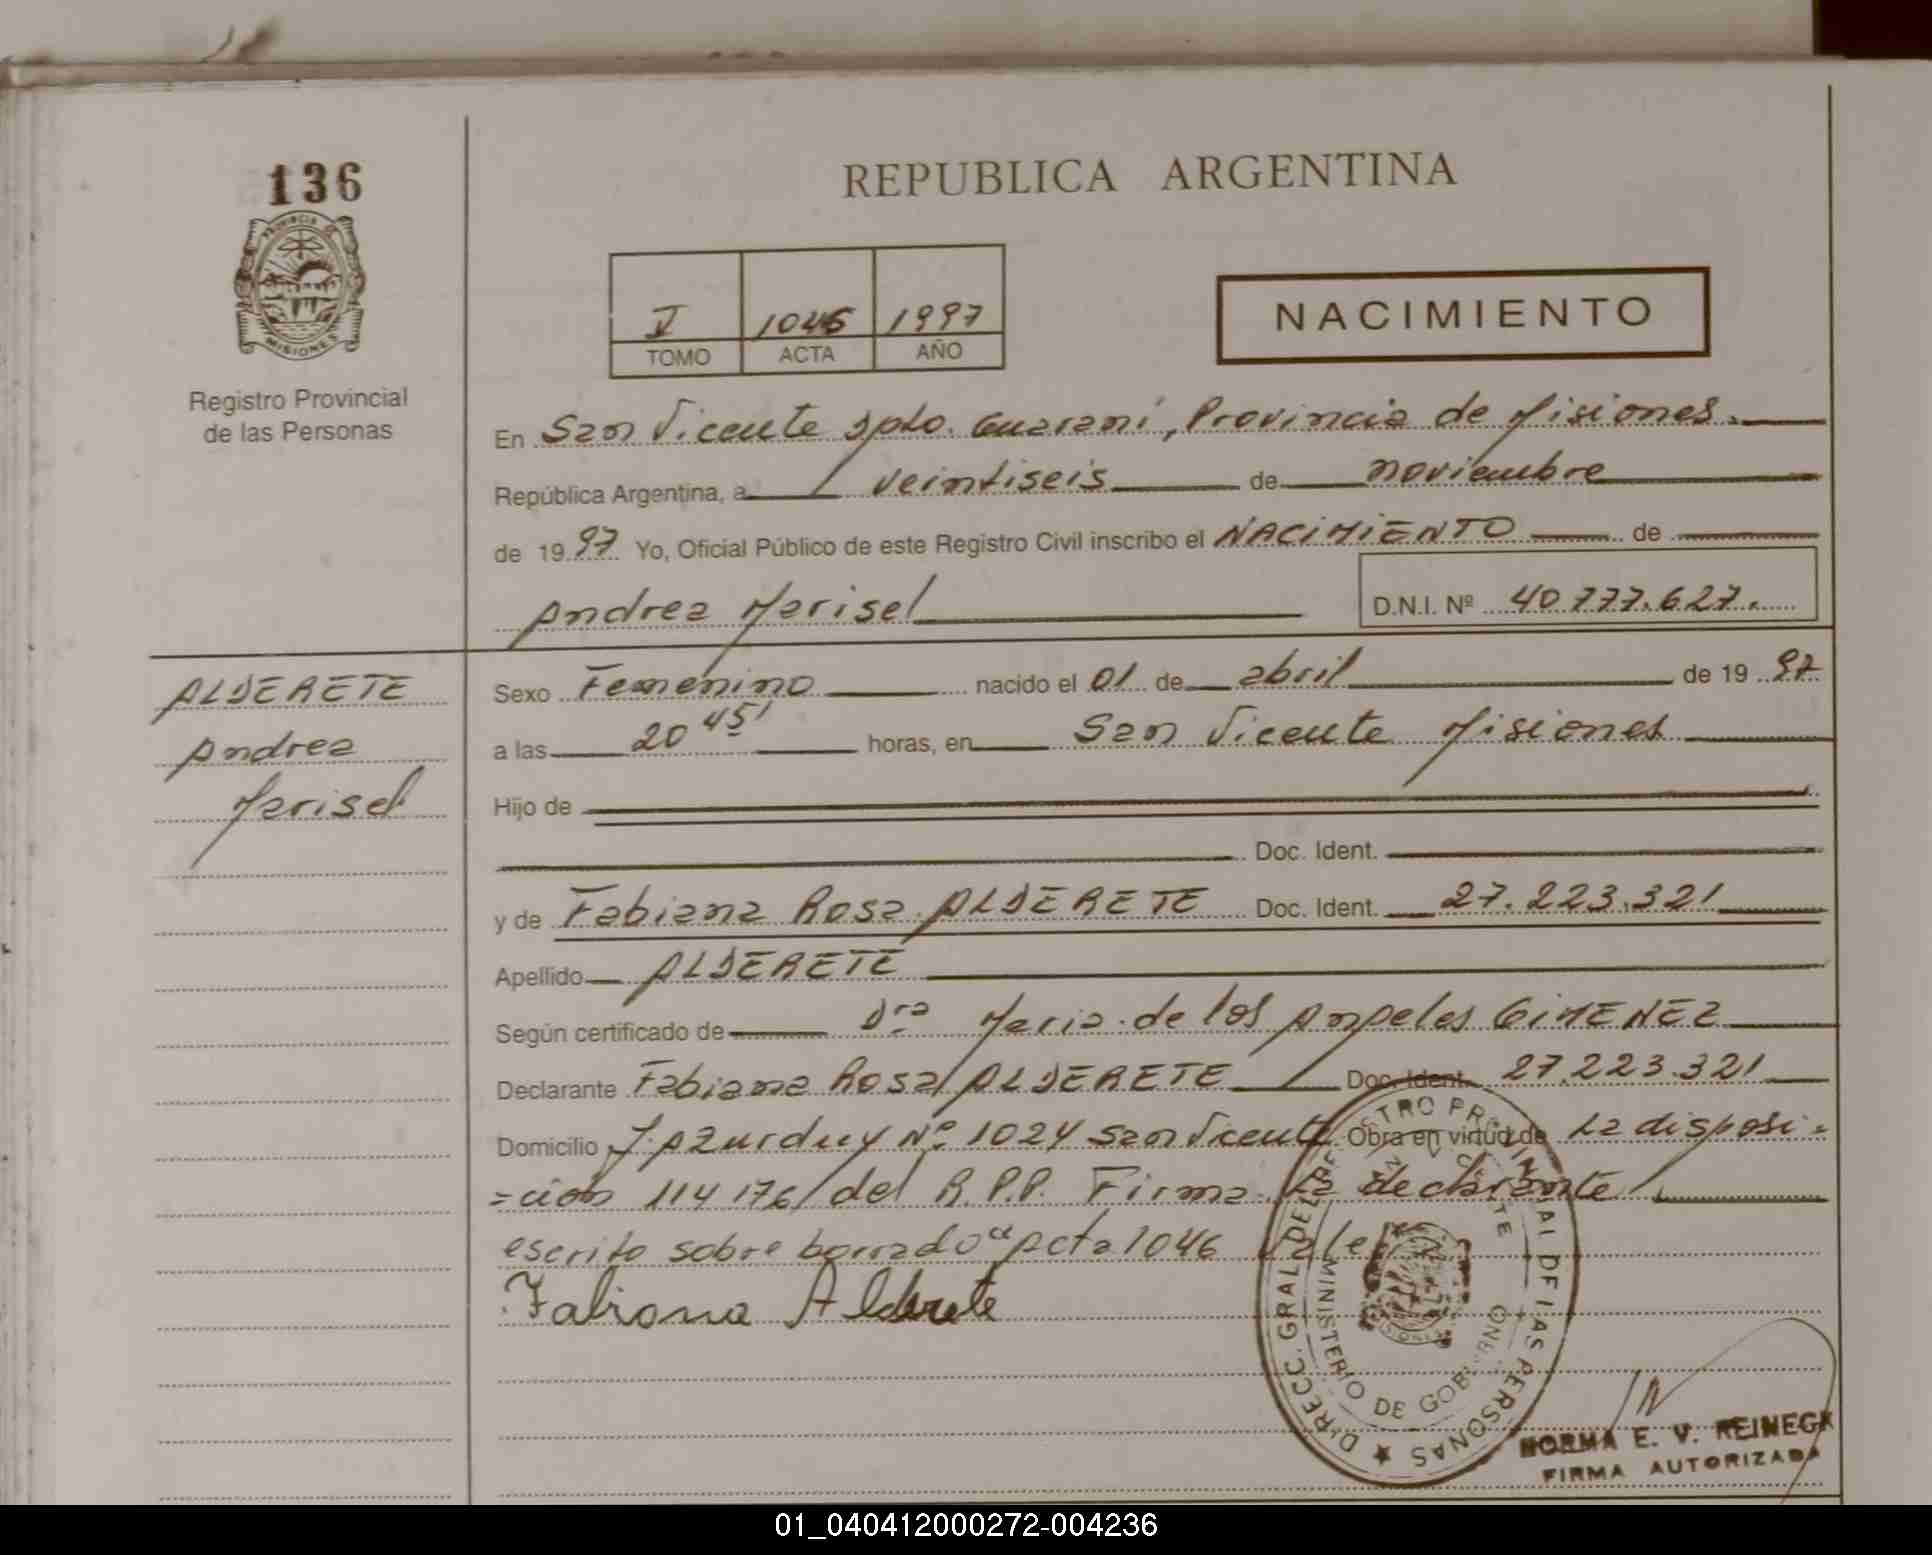 136
PROVINCIA DE
MISIONES
Registro Provincial
de las Personas
REPUBLICA ARGENTINA
V 1046 1997
TOMO ACTA AÑO
NACIMIENTO
En San Vicente Dpto. Guaraní, Provincia de Misiones.
República Argentina, a veintiseis de noviembre
de 1997 Yo, Oficial Público de este Registro Civil inscribo el NACIMIENTO de
Andrea Marisel
D.N.I. Nº 40.777.627.
ALDERETE
Andrea
Marisel
Sexo Femenino nacido el 01 de abril de 1997
a las 20 45' horas, en San Vicente Misiones
Hijo de
Doc. Ident.
y de Fabiana Rosa ALDERETE Doc. Ident. 27.223.321
Apellido ALDERETE
Según certificado de Dra Maria de los Angeles GIMENEZ
Declarante Fabiana Rosa ALDERETE Doc. Ident. 27.223.321
Domicilio J. Azurduy Nº 1024 San Vicente Obra en virtud de La disposi=
=ción 114176/ del R.P.P. Firma La declarante
escrito sobre borrado "Acta 1046 Vale
Fabiana Alderete
DIRECC. GRAL DEL REGISTRO PROVINCIAL DE LAS PERSONAS
MINISTERIO DE GOBIERNO
NORMA E. V. REINEGK
FIRMA AUTORIZADA
01_040412000272-004236